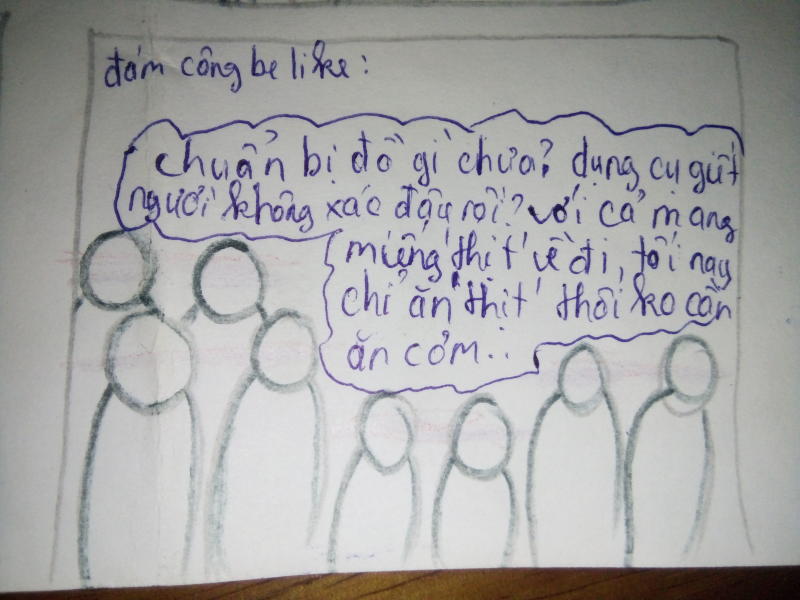 đám công be like:
chuẩn bị đồ gì chưa? dụng cụ gưt
người không xác đậu rồi? với cả mang
miếng thịt về đi, tối nay
chỉ ăn thịt thôi ko cần
ăn cơm..